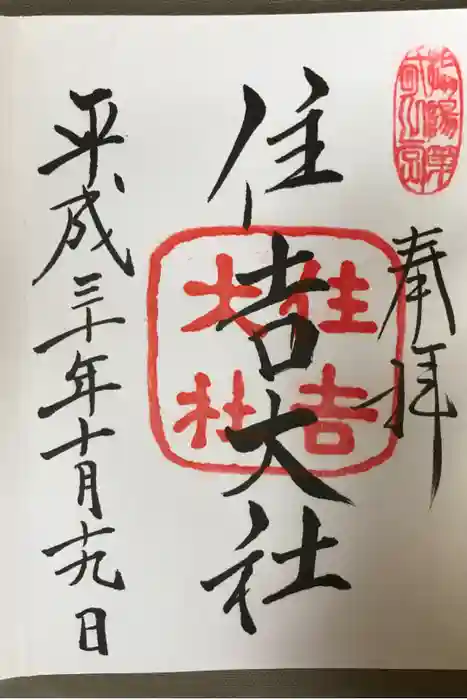 奉拝
住吉大社
住吉
大社
平成三十年十月十九日